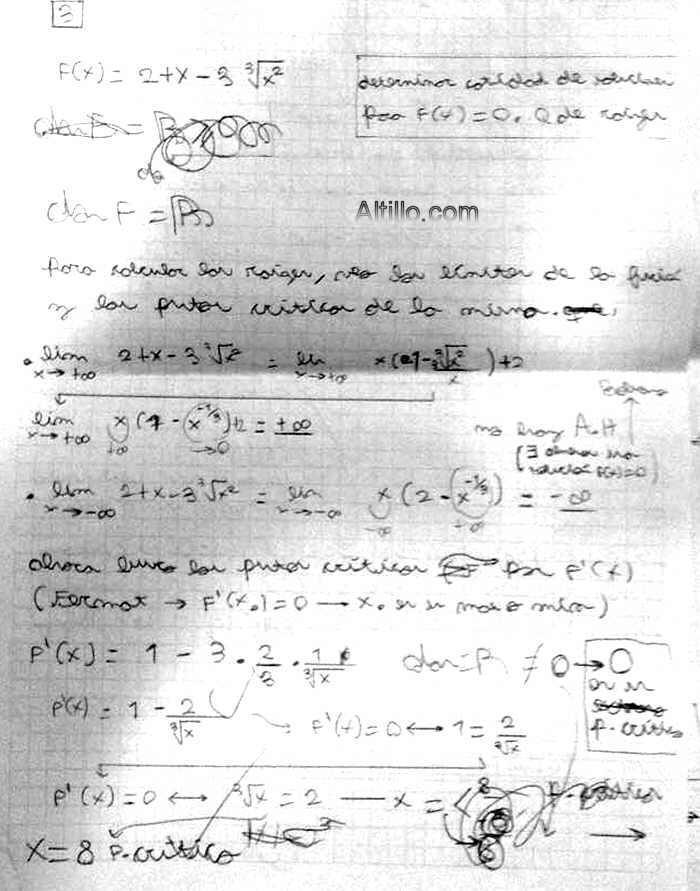 3
F(x) = 2+x-3 ∛x²
determinar cantidad de soluciones
para F(x)=0. Q de raíces
dom F = R
Altillo.com
Para calcular las raíces, veo los límites de la función
y los puntos críticos de la misma.
• lim x→+∞ 2+x-3 ∛x² = lim x→+∞ x(1-3∛x²/x)+2
lim x→+∞ x(1-(x^-1/3))+2 = +∞
no hay A.H
• lim x→-∞ 2+x-3 ∛x² = lim x→-∞ x(2-(x^-1/3)) = -∞
ahora busco los puntos críticos por F'(x)
(Fermat → F'(x₀)=0 — x₀ es un max o min)
F'(x) = 1 - 3 · 2/3 · 1/∛x dom=R ≠ 0 → 0
es un
p. crítico
F'(x) = 1 - 2/∛x → F'(x)=0 ↔ 1 = 2/∛x
F'(x)=0 ↔ ∛x = 2 — x = 8
x=8 p. crítico